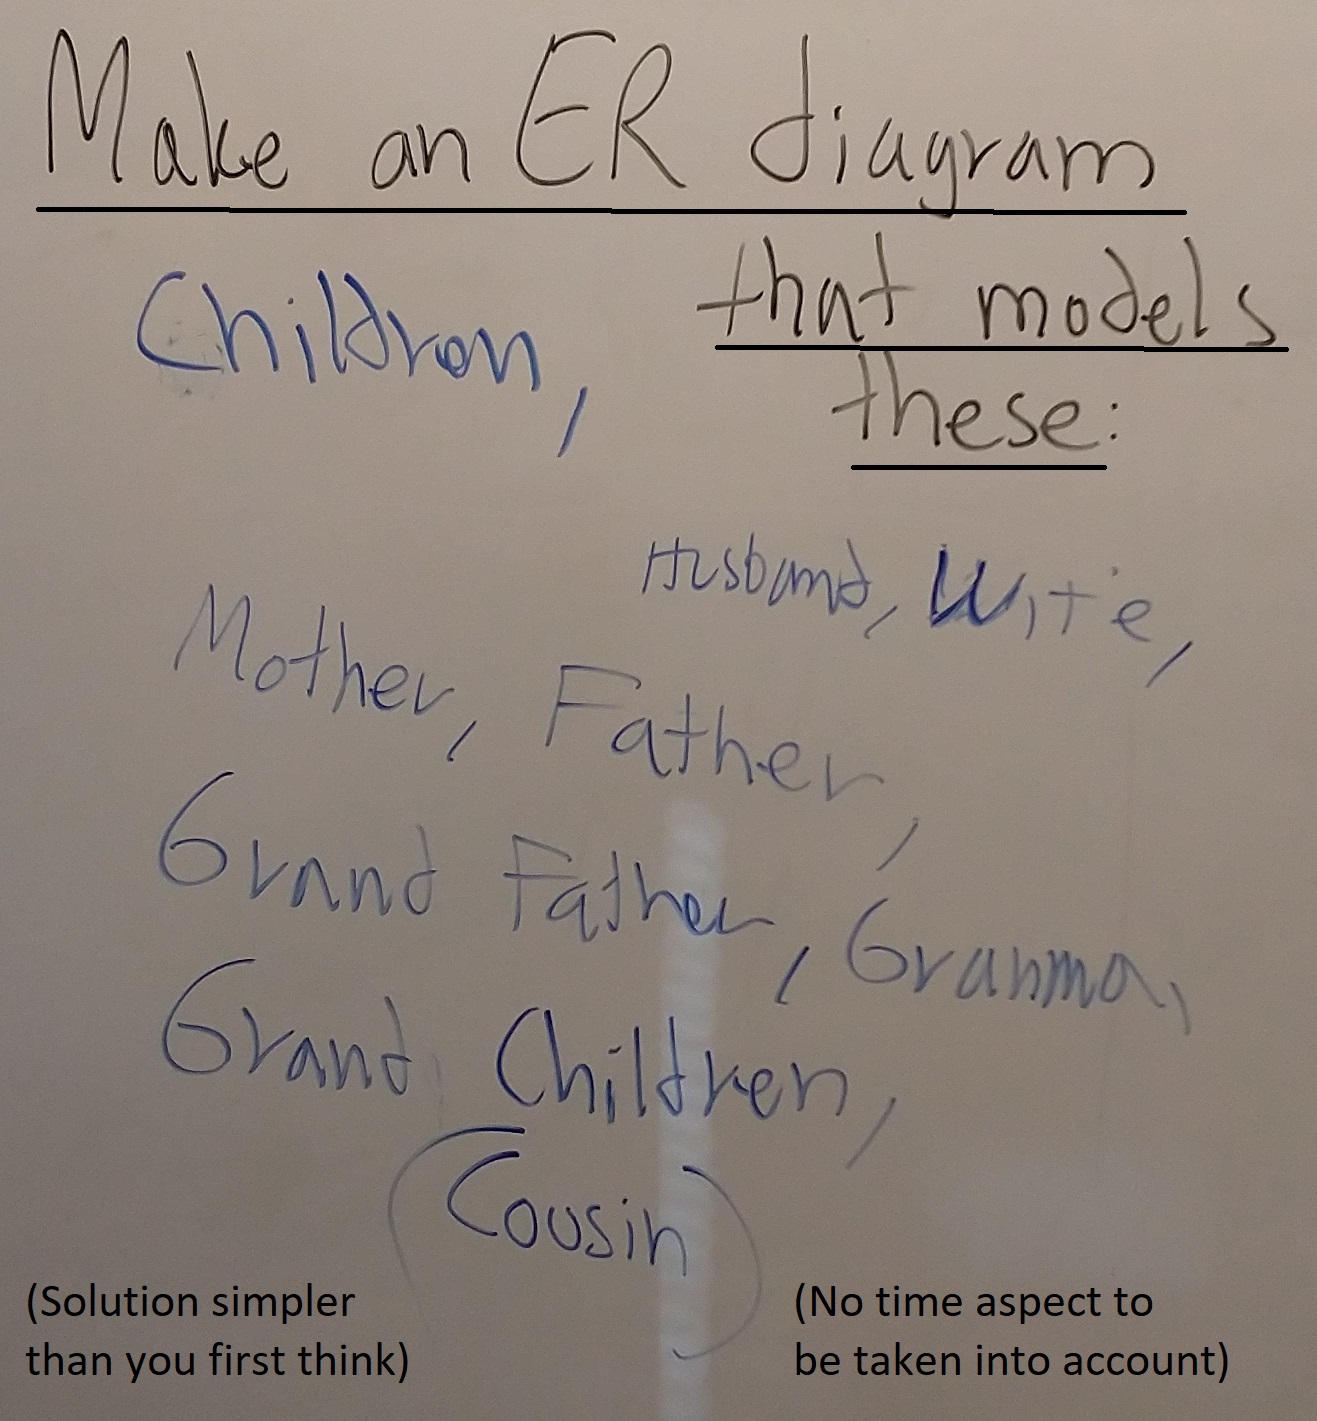 Make an ER diagram
that models
these:
Children,
Husband, Wife,
Mother, Father,
Grand Father, Granma,
Grand Children,
(Cousin)
(Solution simpler
than you first think)
(No time aspect to
be taken into account)